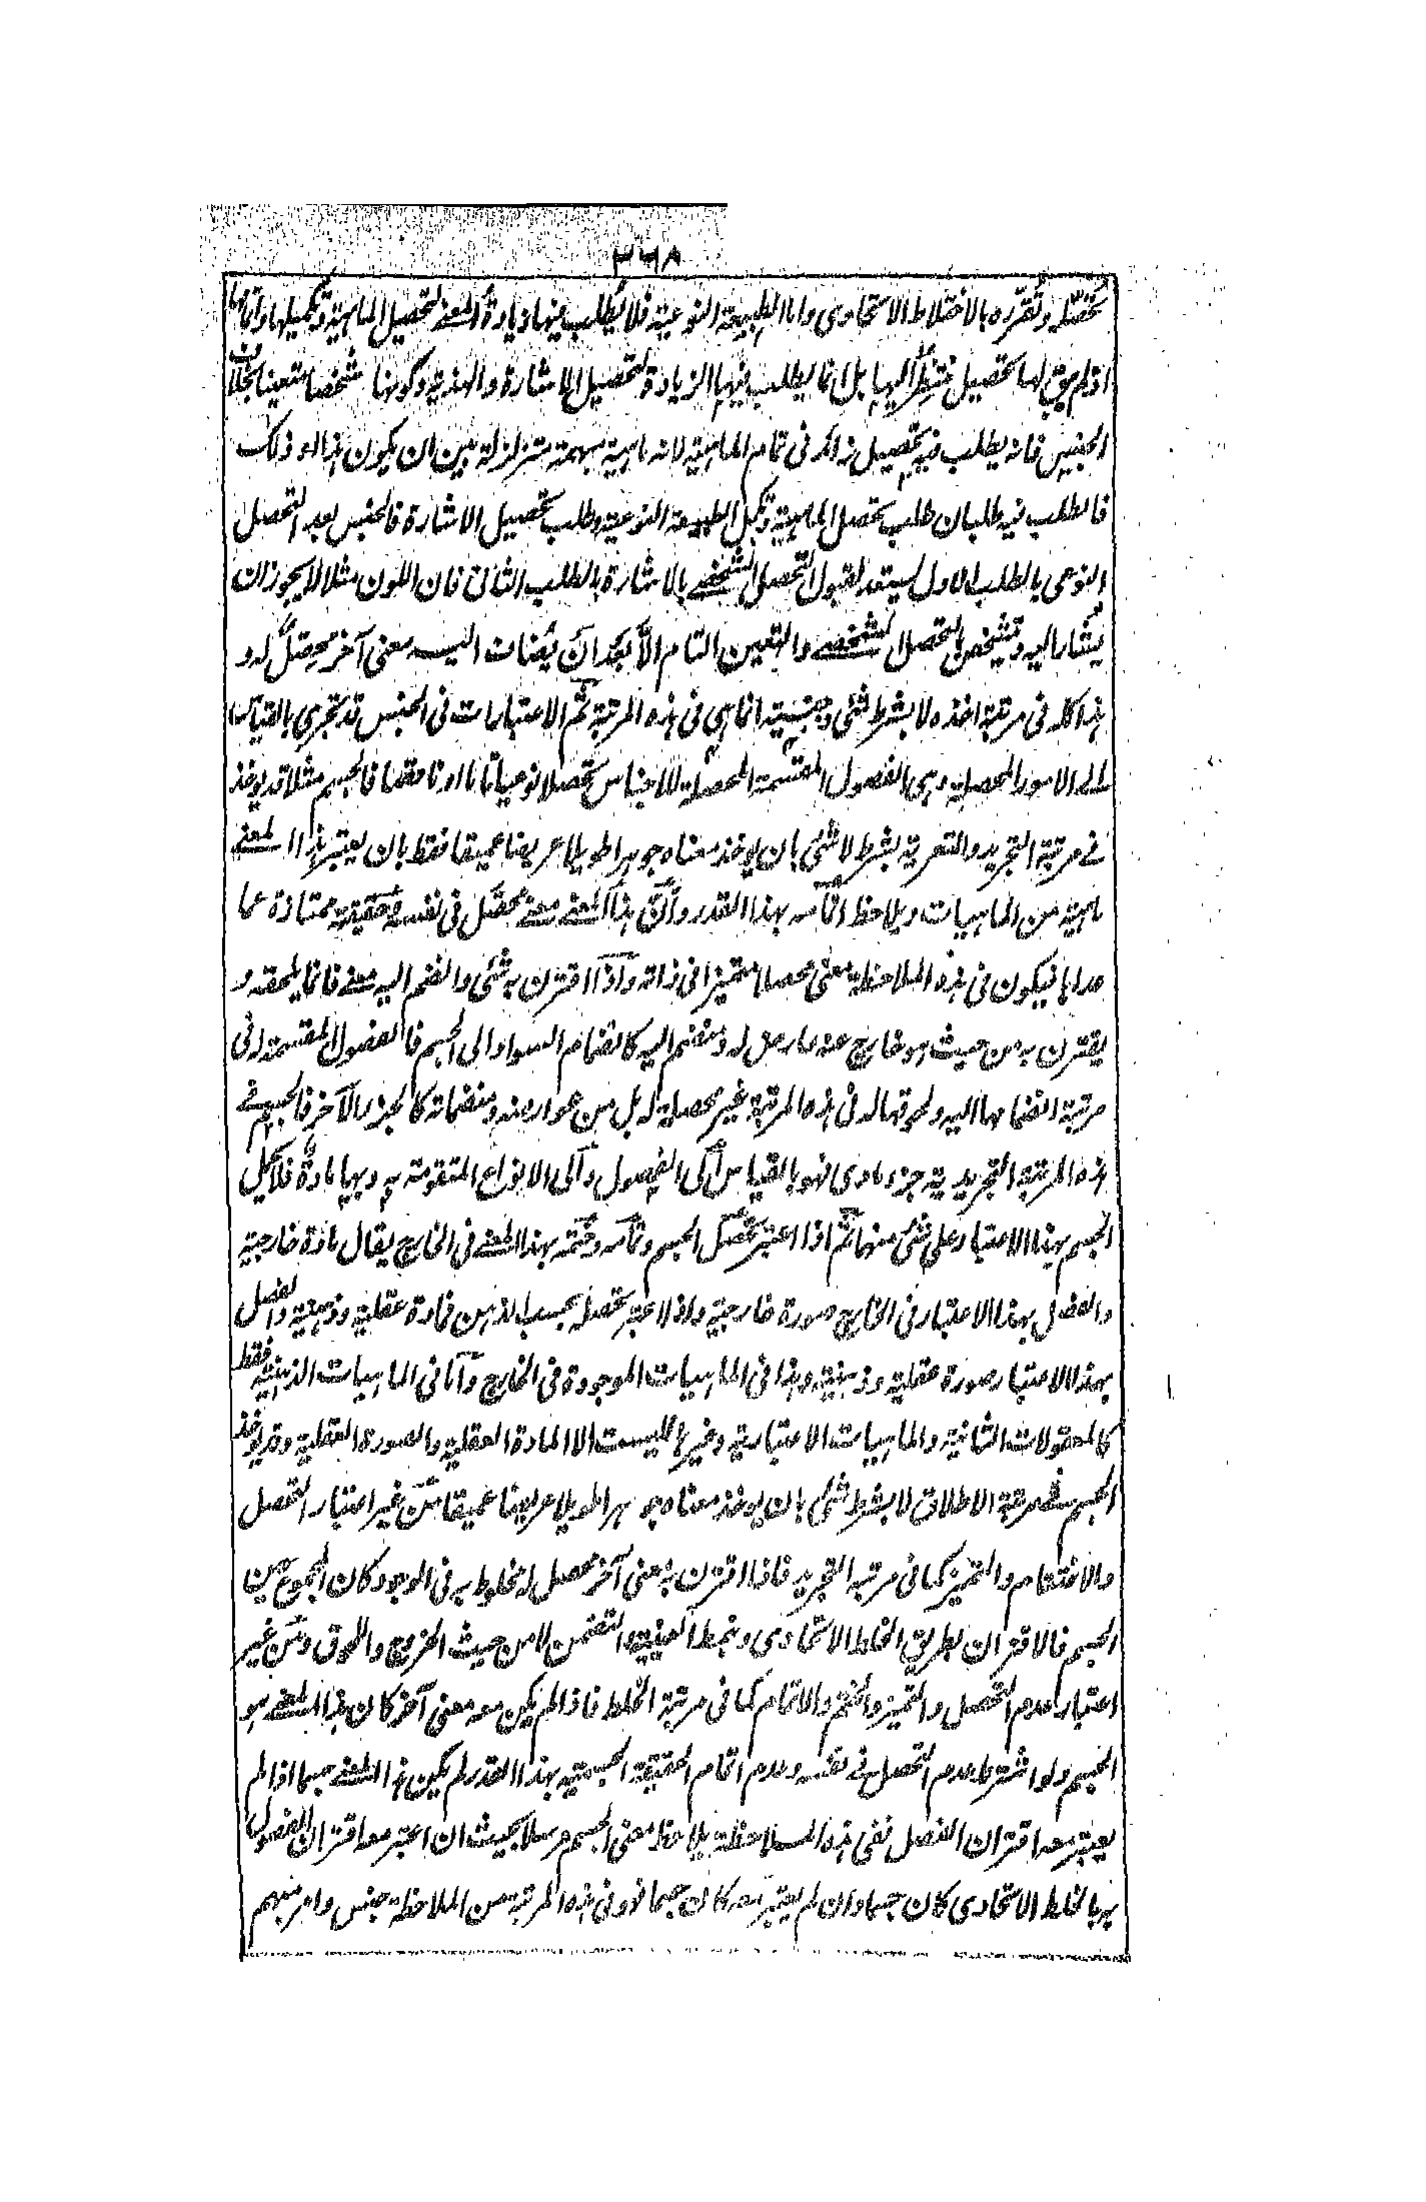 ٣٦٨
تحصّله وتقرّره بالاختلاط الاتحادى واما الطبيعة النوعية فلا يُطلب فيها زيادةُ المعنے لتحصيل الماهية وتكميلها واتمامها
اذ لم يبق لها تحصيل منتظرٌ اليها بل انما يطلب فيها الزيادة لتحصيل الاشارة والهذية وكونها شخصا متعينا بخلاف
الجنس فانه يطلب فيه تحصيل زائد فى تمام الماهية لانه ماهية مبهمة متزلزلة بين ان يكون هذا او ذلك
فالطلب فيه طلبان طلب تحصل الماهية وتكمل الطبيعة النوعية وطلب تحصيل الاشارة فالجنس بعد التحصل
النوعى بالطلب الاول يستعد لقبول التحصل الشخصے بالاشارة بالطلب الثانى فان اللون مثلا لا يجوز ان
يُشار اليه وتشخص بالتحصل الشخصے والتعين التام الّا بعد ان يُضاف اليه معنى آخر محصّلٌ له و
هذا كله فى مرتبة اخذه لا بشرط شئ وجنسيته انما هى فى هذه المرتبة ثم الاعتبارات فى الجنس قد تجرى بالقياس
الے الامور المحصلة وهى الفصول المقسّمة المحصلة للاجناس تحصلا نوعيا تاما او ناقصا فالجسم مثلا قد يوخذ
فے مرتبة التجريد والتعرية بشرط لا شئ بان يوخذ معناه جوهرا طويلا عريضا عميقا فقط بان يعتبر هذا المعنے
ماهية من الماهيات ويلاحظ اتمامه بهذا القدر وأنّ هذا المعنے معنے محصّل فى نفسه وحقيقة ممتازة عما
عداها فيكون فى هذه الملاحظة معنى محصلا متميزا فى ذاته واذا اقترن به شئ وانضم اليه معنے فانما يلحقه و
يقترن به من حيث هو خارج عنه عارض له ومنضم اليه كانضمام السواد الى الجسم فالفصول المقسمة له فى
مرتبة انضمامها اليه ولحوقها له فى هذه المرتبة غير محصلة له بل من عوارضه ومنضماته كالجزء الآخر فالجسم فے
هذه المرتبة التجريدية جزء مادى فهو بالقياس الى الفصول والى الانواع المتقومة به وبها مادةٌ فلا يحمل
الجسم بهذا الاعتبار على شئ منهما ثم اذا اعتبر تحصّل الجسم وتمامه وختمه بهذا المعنے فى الخارج يقال مادة خارجية
والفصل بهذا الاعتبار فى الخارج صورة خارجية واذا اعتبر تحصله بحسب الذهن فمادة عقلية وذهنية والفصل
بهذا الاعتبار صورة عقلية وذهنية وهذا فى الماهيات الموجودة فى الخارج واما فى الماهيات الذهنية فقط
كالمعقولات الثانية والماهيات الاعتبارية وغيرها ليست الا المادة العقلية والصورة العقلية وقد يوخذ
الجسم فے مرتبة الاطلاق لا بشرط شئ بان يوخذ معناه جوهرا طويلا عريضا عميقا من غير اعتبار التحصل
والاختتام والتميز كما فى مرتبة التجريد فاذا اقترن به معنى آخر محصل له مخلوط به فى الوجود كان المجموع عين
الجسم فالاقتران بطريق الخلط الاتحادى ونمط العينية والتضمن لا من حيث الخروج واللحوق ومن غير
اعتبار عدم التحصل والتميز والختم والاتمام كما فى مرتبة الخلط فاذا لم يكن معه معنى آخر كان هذا المعنے هو
الجسم ولو اشترط عدم التحصل فے نفسه وعدم اتمام الحقيقة الجسمية بهذا القدر لم يكن هذا المعنے جسما اذا لم
يعتبر معه اقتران الفصل ففى هذه الملاحظة يلاحظ معنى الجسم مرسلا بحيث ان اعتبر معه اقتران الفصول
به بالخلط الاتحادى كان جسما وان لم يعتبر معه كان جسما فهو فى هذه المرتبة من الملاحظة جنس وامر مبهم